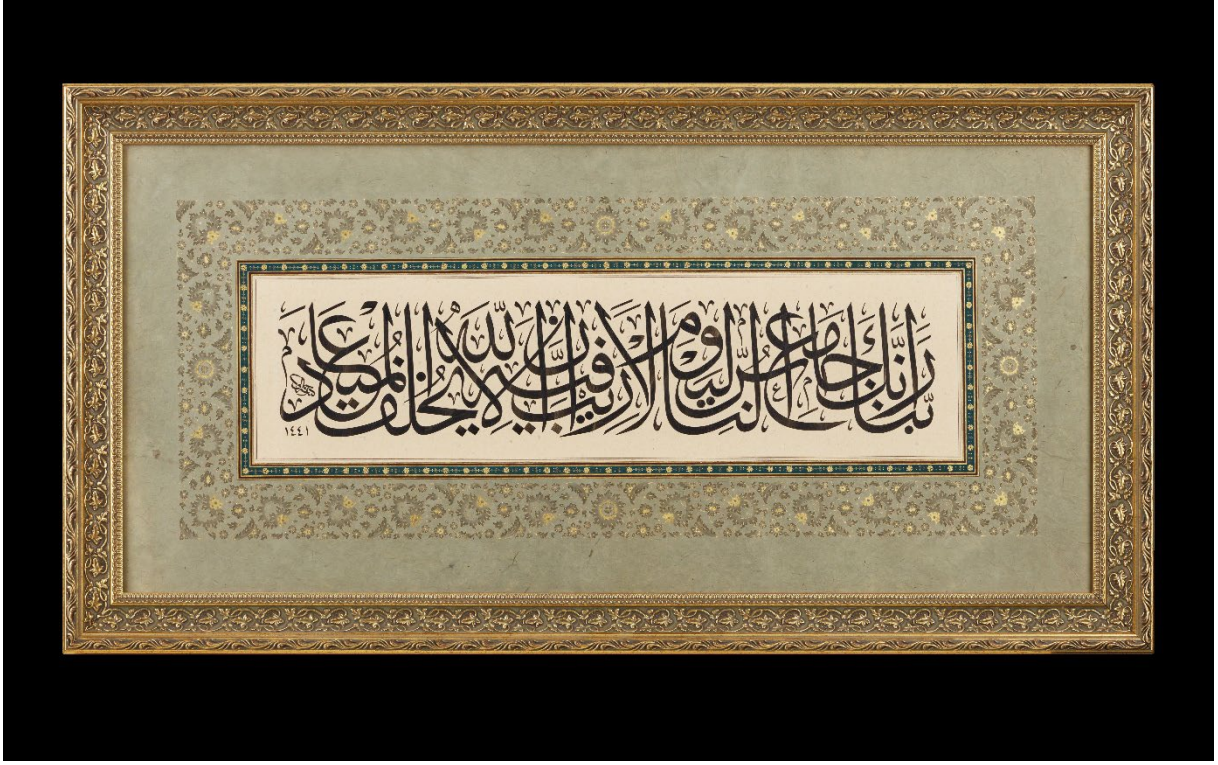 رَبَّنَا إِنَّكَ جَامِعُ النَّاسِ لِيَوْمٍ لَا رَيْبَ فِيهِ إِنَّ اللَّهَ لَا يُخْلِفُ الْمِيعَادَ
١٤٤١